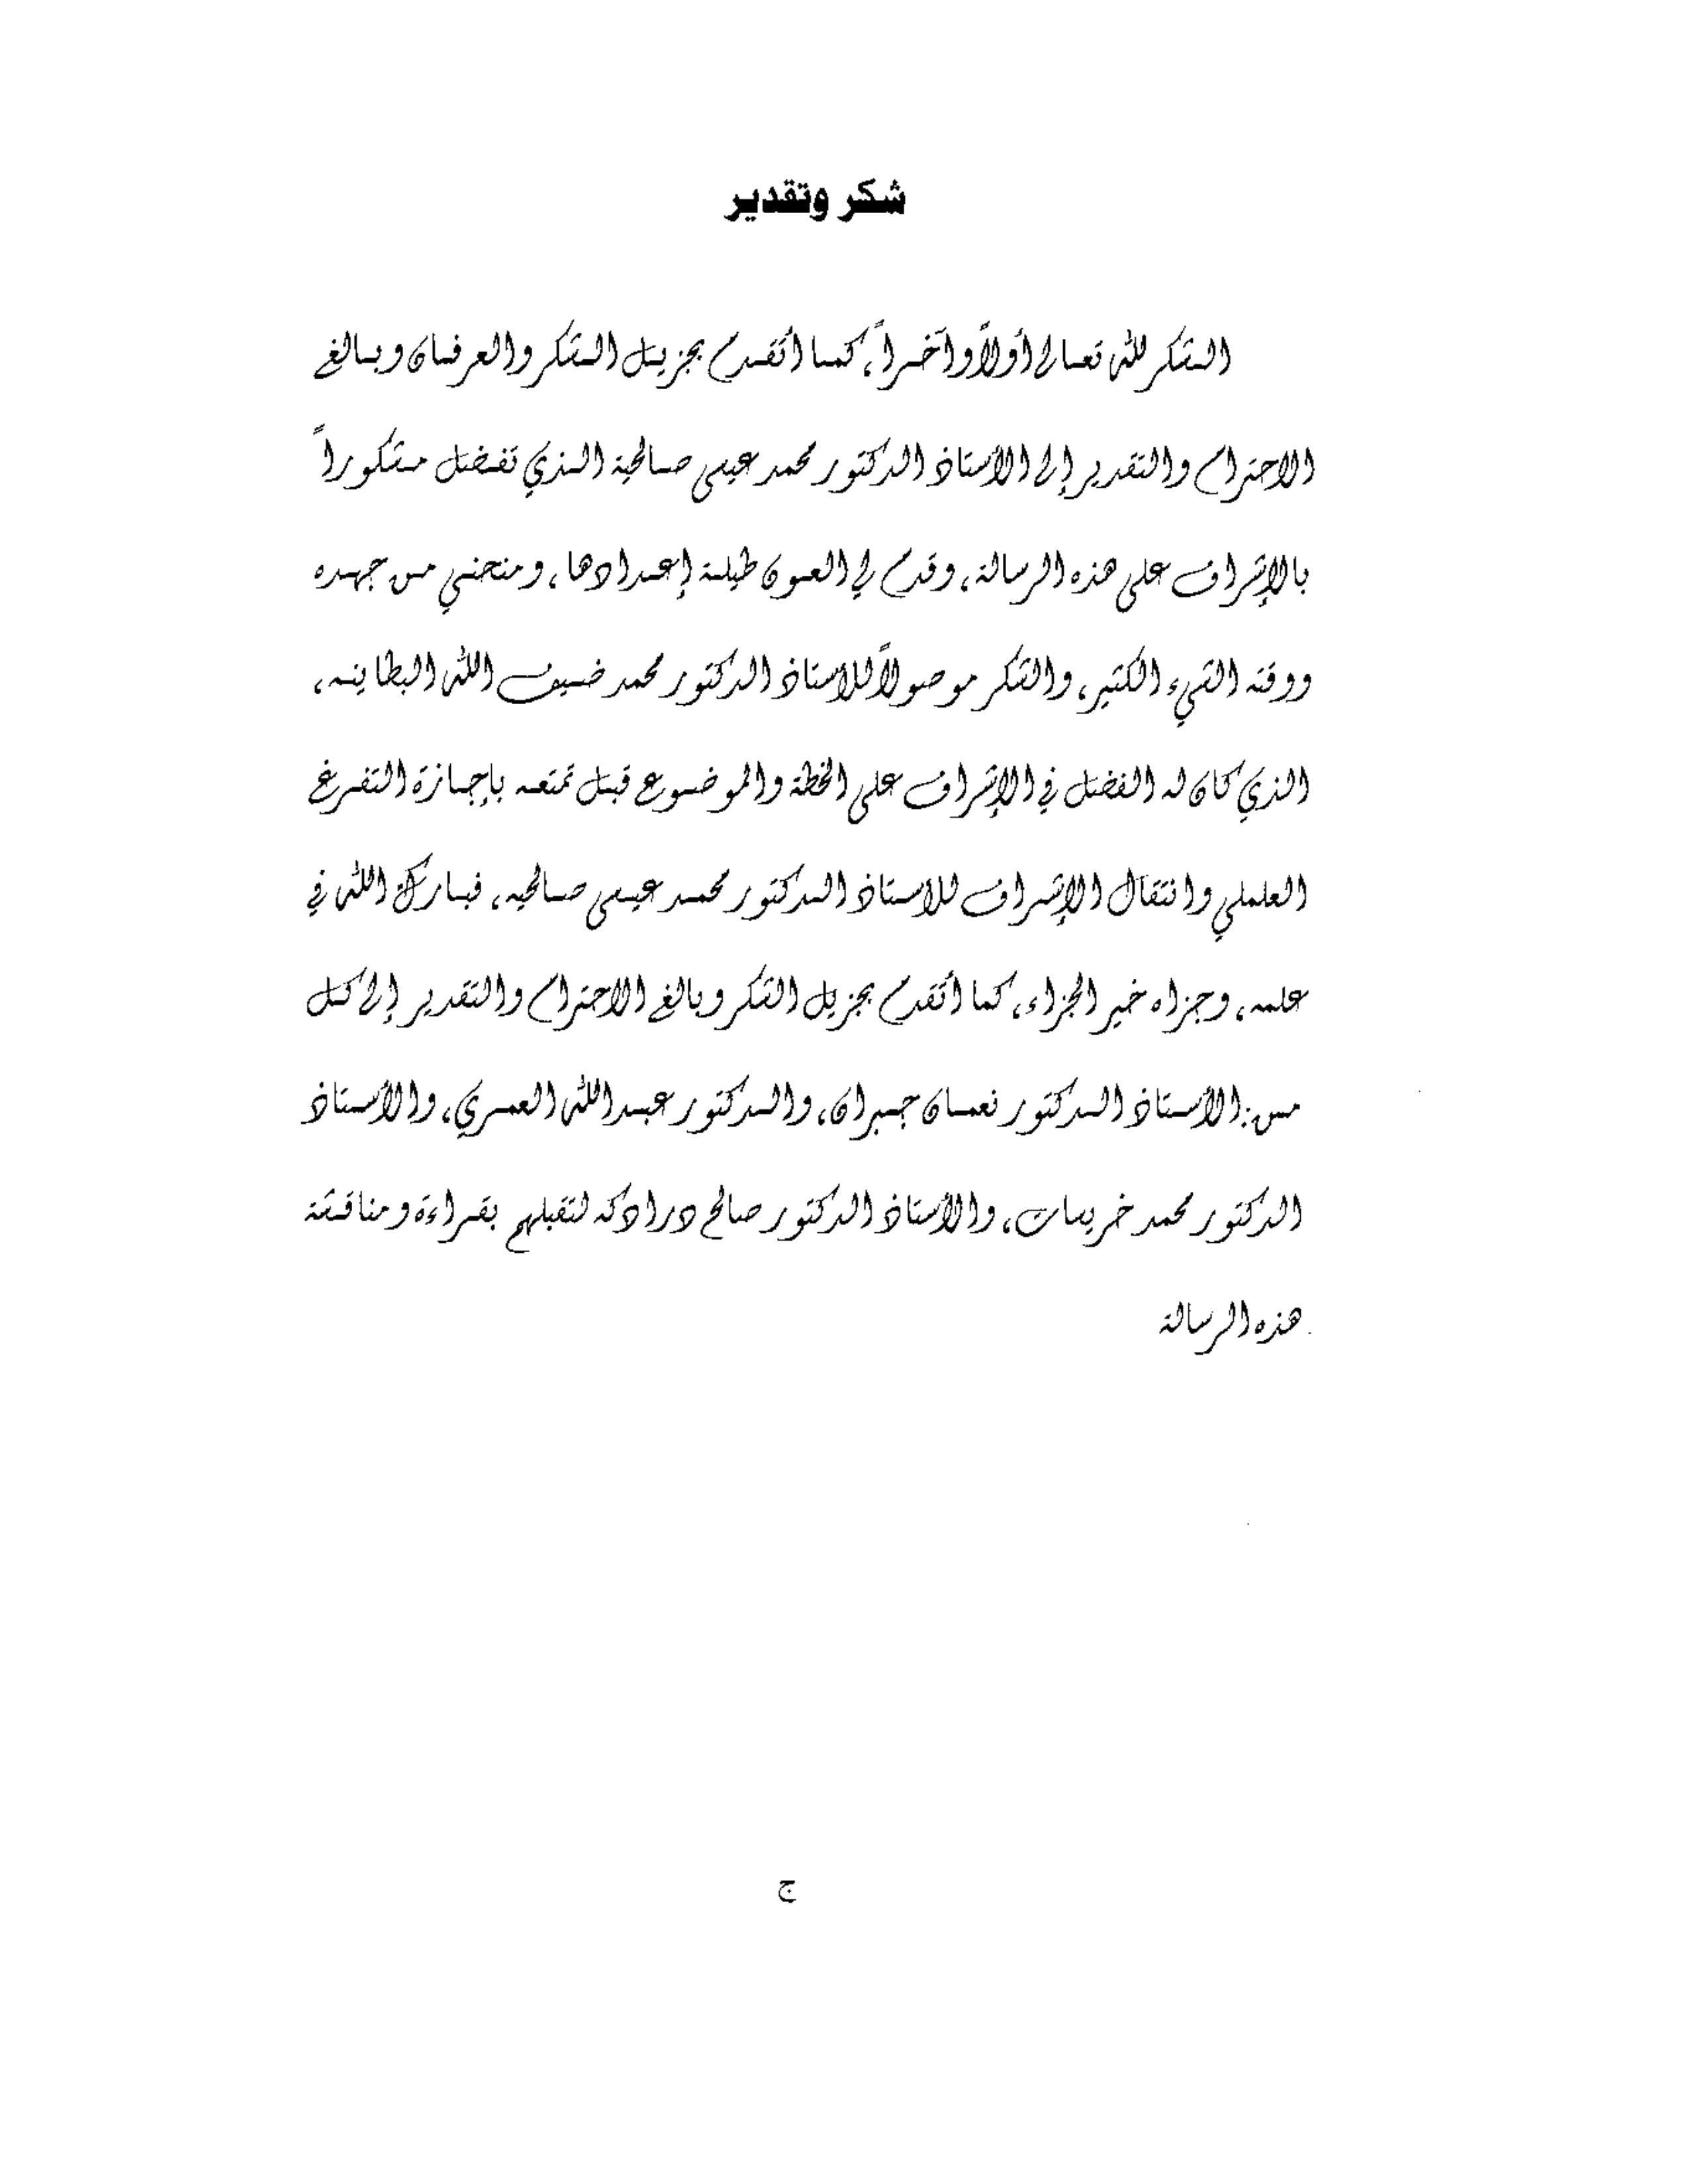 شكر وتقدير
الشكر لله تعالى أولاً وآخراً، كما أتقدم بجزيل الشكر والعرفان وبالغ
الاحترام والتقدير إلى الأستاذ الدكتور محمد عيسى صالحية الذي تفضل مشكوراً
بالإشراف على هذه الرسالة، وقدم لي العون طيلة إعدادها، ومنحني من جهده
ووقته الشيء الكثير، والشكر موصولاً للأستاذ الدكتور محمد ضيف الله البطاينه،
الذي كان له الفضل في الإشراف على الخطة والموضوع قبل تمتعه بإجازة التفرغ
العلملي وانتقال الإشراف للاستاذ الدكتور محمد عيسى صالحيه، فبارك الله في
علمه، وجزاه خير الجزاء، كما أتقدم بجزيل الشكر وبالغ الاحترام والتقدير إلى كل
من: الأستاذ الدكتور نعمان جبران، والدكتور عبدالله العمري، والأستاذ
الدكتور محمد خريسات، والأستاذ الدكتور صالح درادكه لتقبلهم بقراءة ومناقشة
هذه الرسالة.
ج